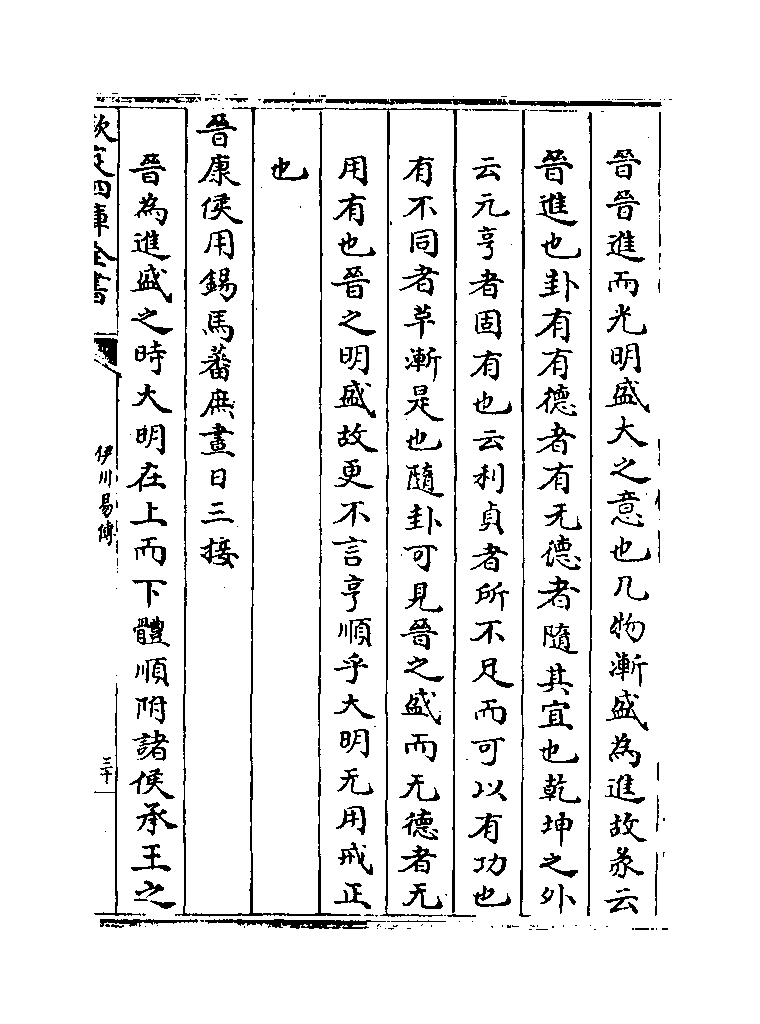 晉晉進而光明盛大之意也凡物漸盛為進故彖云
晉進也卦有有德者有无德者隨其宜也乾坤之外
云元亨者固有也云利貞者所不足而可以有功也
有不同者革漸是也隨卦可見晉之盛而无德者无
用有也晉之明盛故更不言亨順乎大明无用戒正
也
晉康侯用錫馬蕃庶晝日三接
晉為進盛之時大明在上而下體順附諸侯承王之
欽定四庫全書
伊川易傳
三十